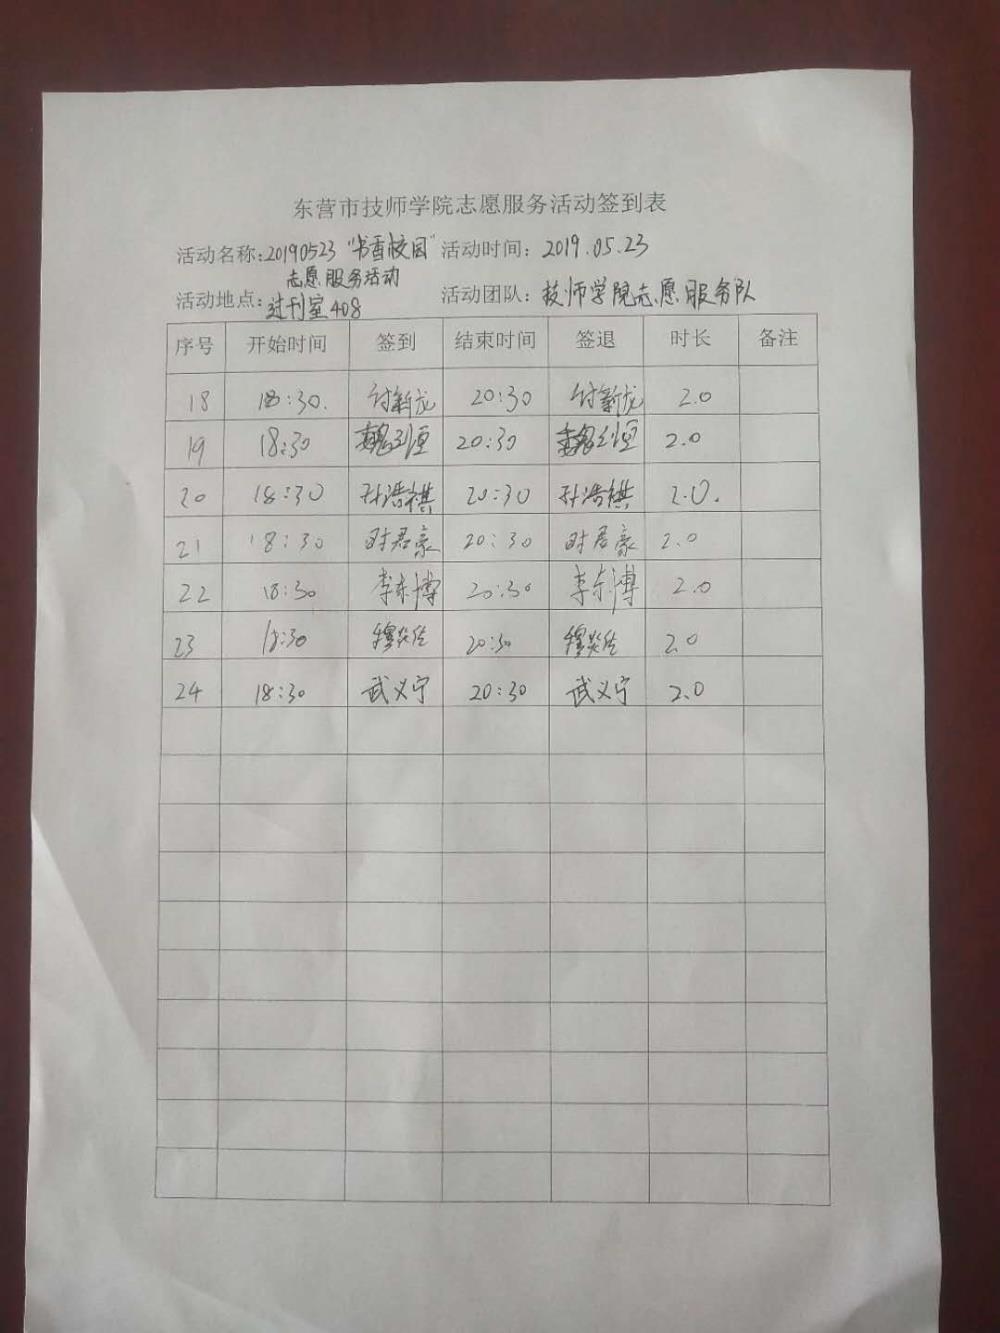 东营市技师学院志愿服务活动签到表
活动名称:20190523“书香校园” 活动时间: 2019.05.23
志愿服务活动
活动地点: 过刊室408 活动团队: 技师学院志愿服务队
序号 开始时间 签到 结束时间 签退 时长 备注
18 18:30. 付新龙 20:30 付新龙 2.0
19 18:30 20:30 2.0
20 18:30 孙浩祺 20:30 孙浩祺 2.0.
21 18:30 时君豪 20:30 时君豪 2.0
22 18:30 李东博 20:30 李东博 2.0
23 18:30 20:30 2.0
24 18:30 武义宁 20:30 武义宁 2.0